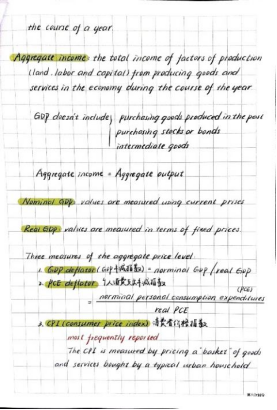 the course of a year.
Aggregate income the total income of factors of production
(land, labor and capital) from producing goods and
services in the economy during the course of the year
GDP doesn't include purchasing goods produced in the past
purchasing stocks or bonds
intermediate goods
Aggregate income = Aggregate output
Nominal GDP values are measured using current prices
Real GDP values are measured in terms of fixed prices.
Three measures of the aggregate price level
1. GDP deflator (GDP平减指数) = norminal GDP / real GDP
2. PCE deflator 个人消费支出平减指数
(PCE)
= norminal personal consumption expenditures
real PCE
3. CPI (consumer price index) 消费者价格指数
most frequently reported
The CPI is measured by pricing a "basket" of goods
and services bought by a typical urban household.